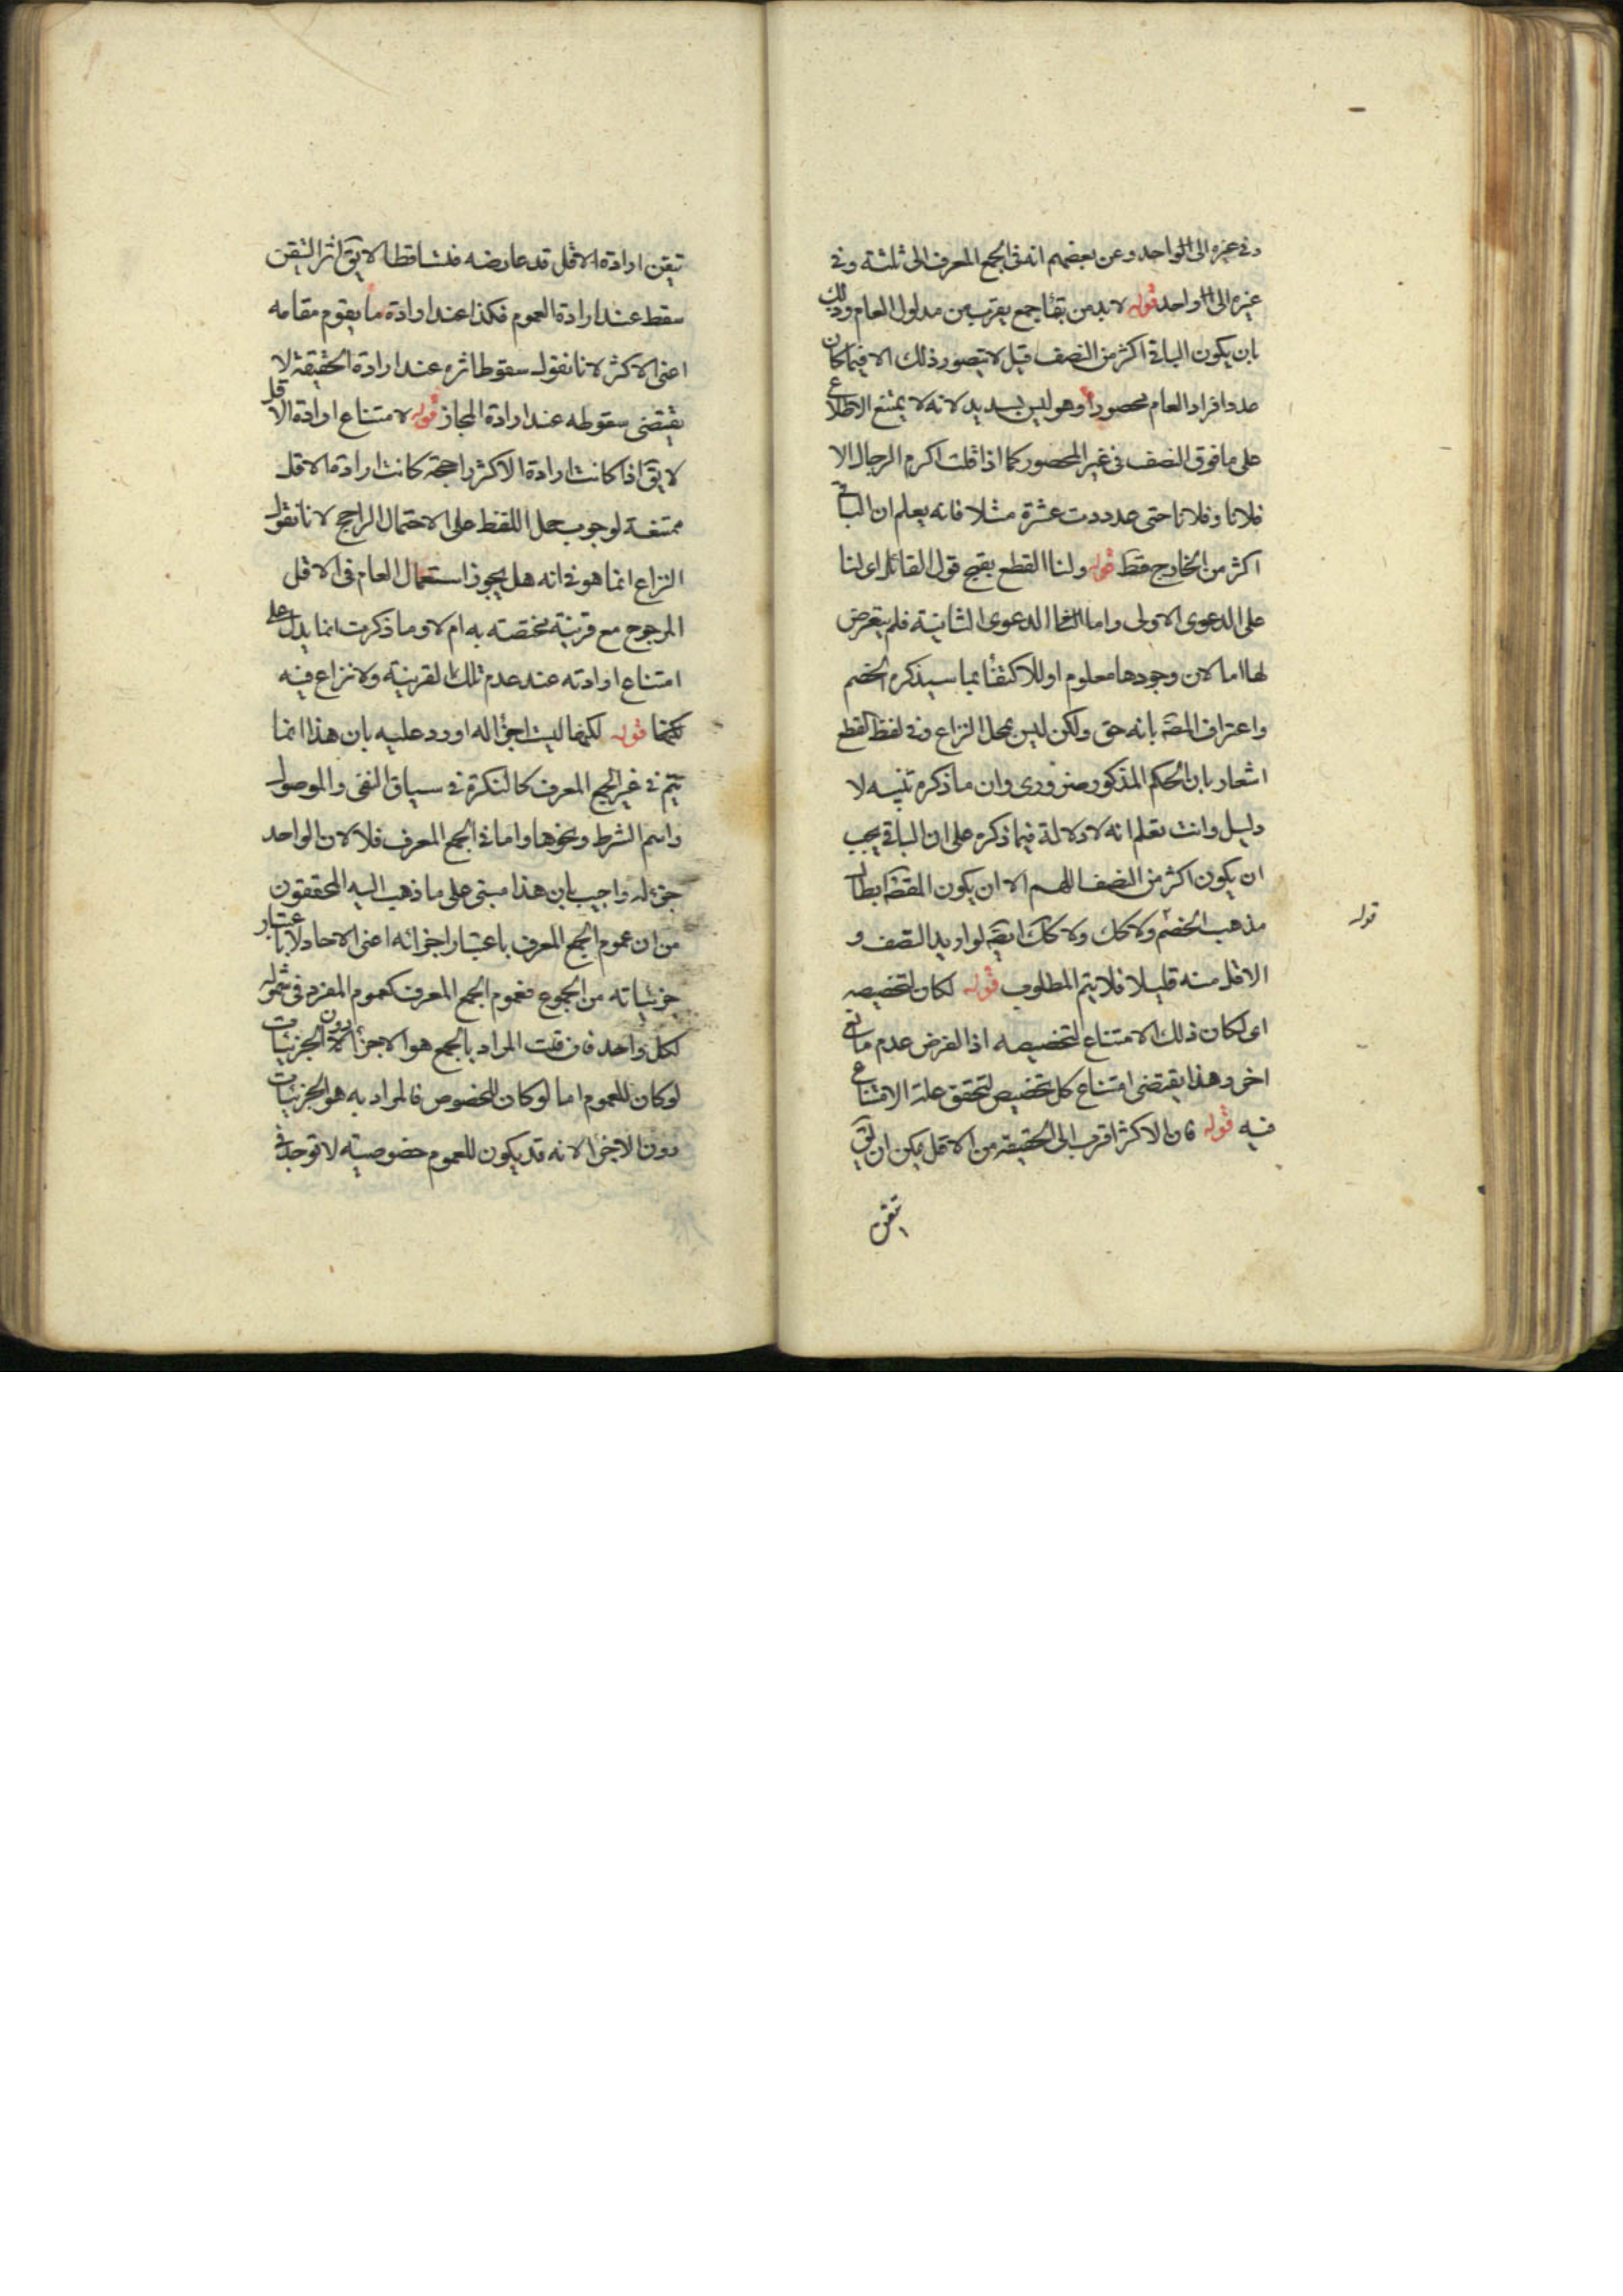 وفى غيره الى الواحد وعن بعضهم انه فى الجمع المعرف الى ثلثة وفى
غيره الى الواحد قوله لا بد من بقاء جمع يقرب من مدلول العام وذلك
بان يكون الباقى اكثر من النصف قيل لا يتصور ذلك الا فيما كان
عدد افراد العام محصورا وهو ليس بسديد لانه لا يمتنع الاطلاع
على ما فوق النصف فى غير المحصور كما اذا قلت اكرم الرجال الا
فلانا وفلانا حتى عددت عشرة مثلا فانه يعلم ان الباقى
اكثر من الخارج قط قوله ولنا القطع بقبح قول القائل اى لنا
على الدعوى الاولى واما الدعوى الثانية فلم يتعرض
لها اما لان وجودها معلوم او للاكتفاء بما سيذكره الخصم
واعتراف المصَ بانه حق ولكن ليس بمحل النزاع وفى لفظ القطع
اشعار بان الحكم المذكور ضرورى وان ما ذكره تنبيه لا
دليل وانت تعلم انه لا دلالة فيما ذكره على ان الباقى يجب
ان يكون اكثر من النصف اللهم الا ان يكون المقصَ ابطال
مذهب الخصم ولا كل ولا كك ايضَ لو اريد النصف و
الاقل منه قليلا فلا يتم المطلوب قوله لكان لتخصيصه
اى لكان ذلك الامتناع لتخصيصه اذ الفرض عدم مانع
اخر وهذا يقتضى امتناع كل تخصيص لتحقق علة الامتناع
فيه قوله فان الاكثر اقرب الى الحقيقة من الاقل يمكن ان يقَ
تيقن
قوله
تيقن ارادة الاقل قد عارضه فتساقطا لا يقَ اثر التيقن
سقط عند ارادة العموم فكذا عند ارادة ما يقوم مقامه
اعنى الاكثر لانا نقول سقوط اثره عند ارادة الحقيقة لا
يقتضى سقوطه عند ارادة المجاز قوله لامتناع ارادة الاقل
لا يقَ اذا كانت ارادة الاكثر راجحة كانت ارادة الاقل
ممتنعة لوجوب حمل اللفظ على الاحتمال الراجح لانا نقول
النزاع انما هو فى انه هل يجوز استعمال العام فى الاقل
المرجوح مع قرينة مختصة به ام لا وما ذكرت انما يدل على
امتناع ارادته عند عدم تلك القرينة ولا نزاع فيه
قوله لكنها ليت اجزاء له اورد عليه بان هذا انما
يتم فى غير الجمع المعرف كالنكرة فى سياق النفى والموصول
واسم الشرط ونحوها واما فى الجمع المعرف فلا لان الواحد
جزء له واجيب بان هذا مبنى على ما ذهب اليه المحققون
من ان عموم الجمع المعرف باعتبار اجزائه اعنى الاحاد لا باعتبار
جزئياته من الجموع فعموم الجمع المعرف كعموم المفرد فى شموله
لكل واحد فان قلت المراد بالجمع هو الاجزاء دون الجزئيات
لو كان للعموم اما لو كان للخصوص فالمراد به هو الجزئيات
دون الاجزاء لانه قد يكون للعموم خصوصية لا توجد فى